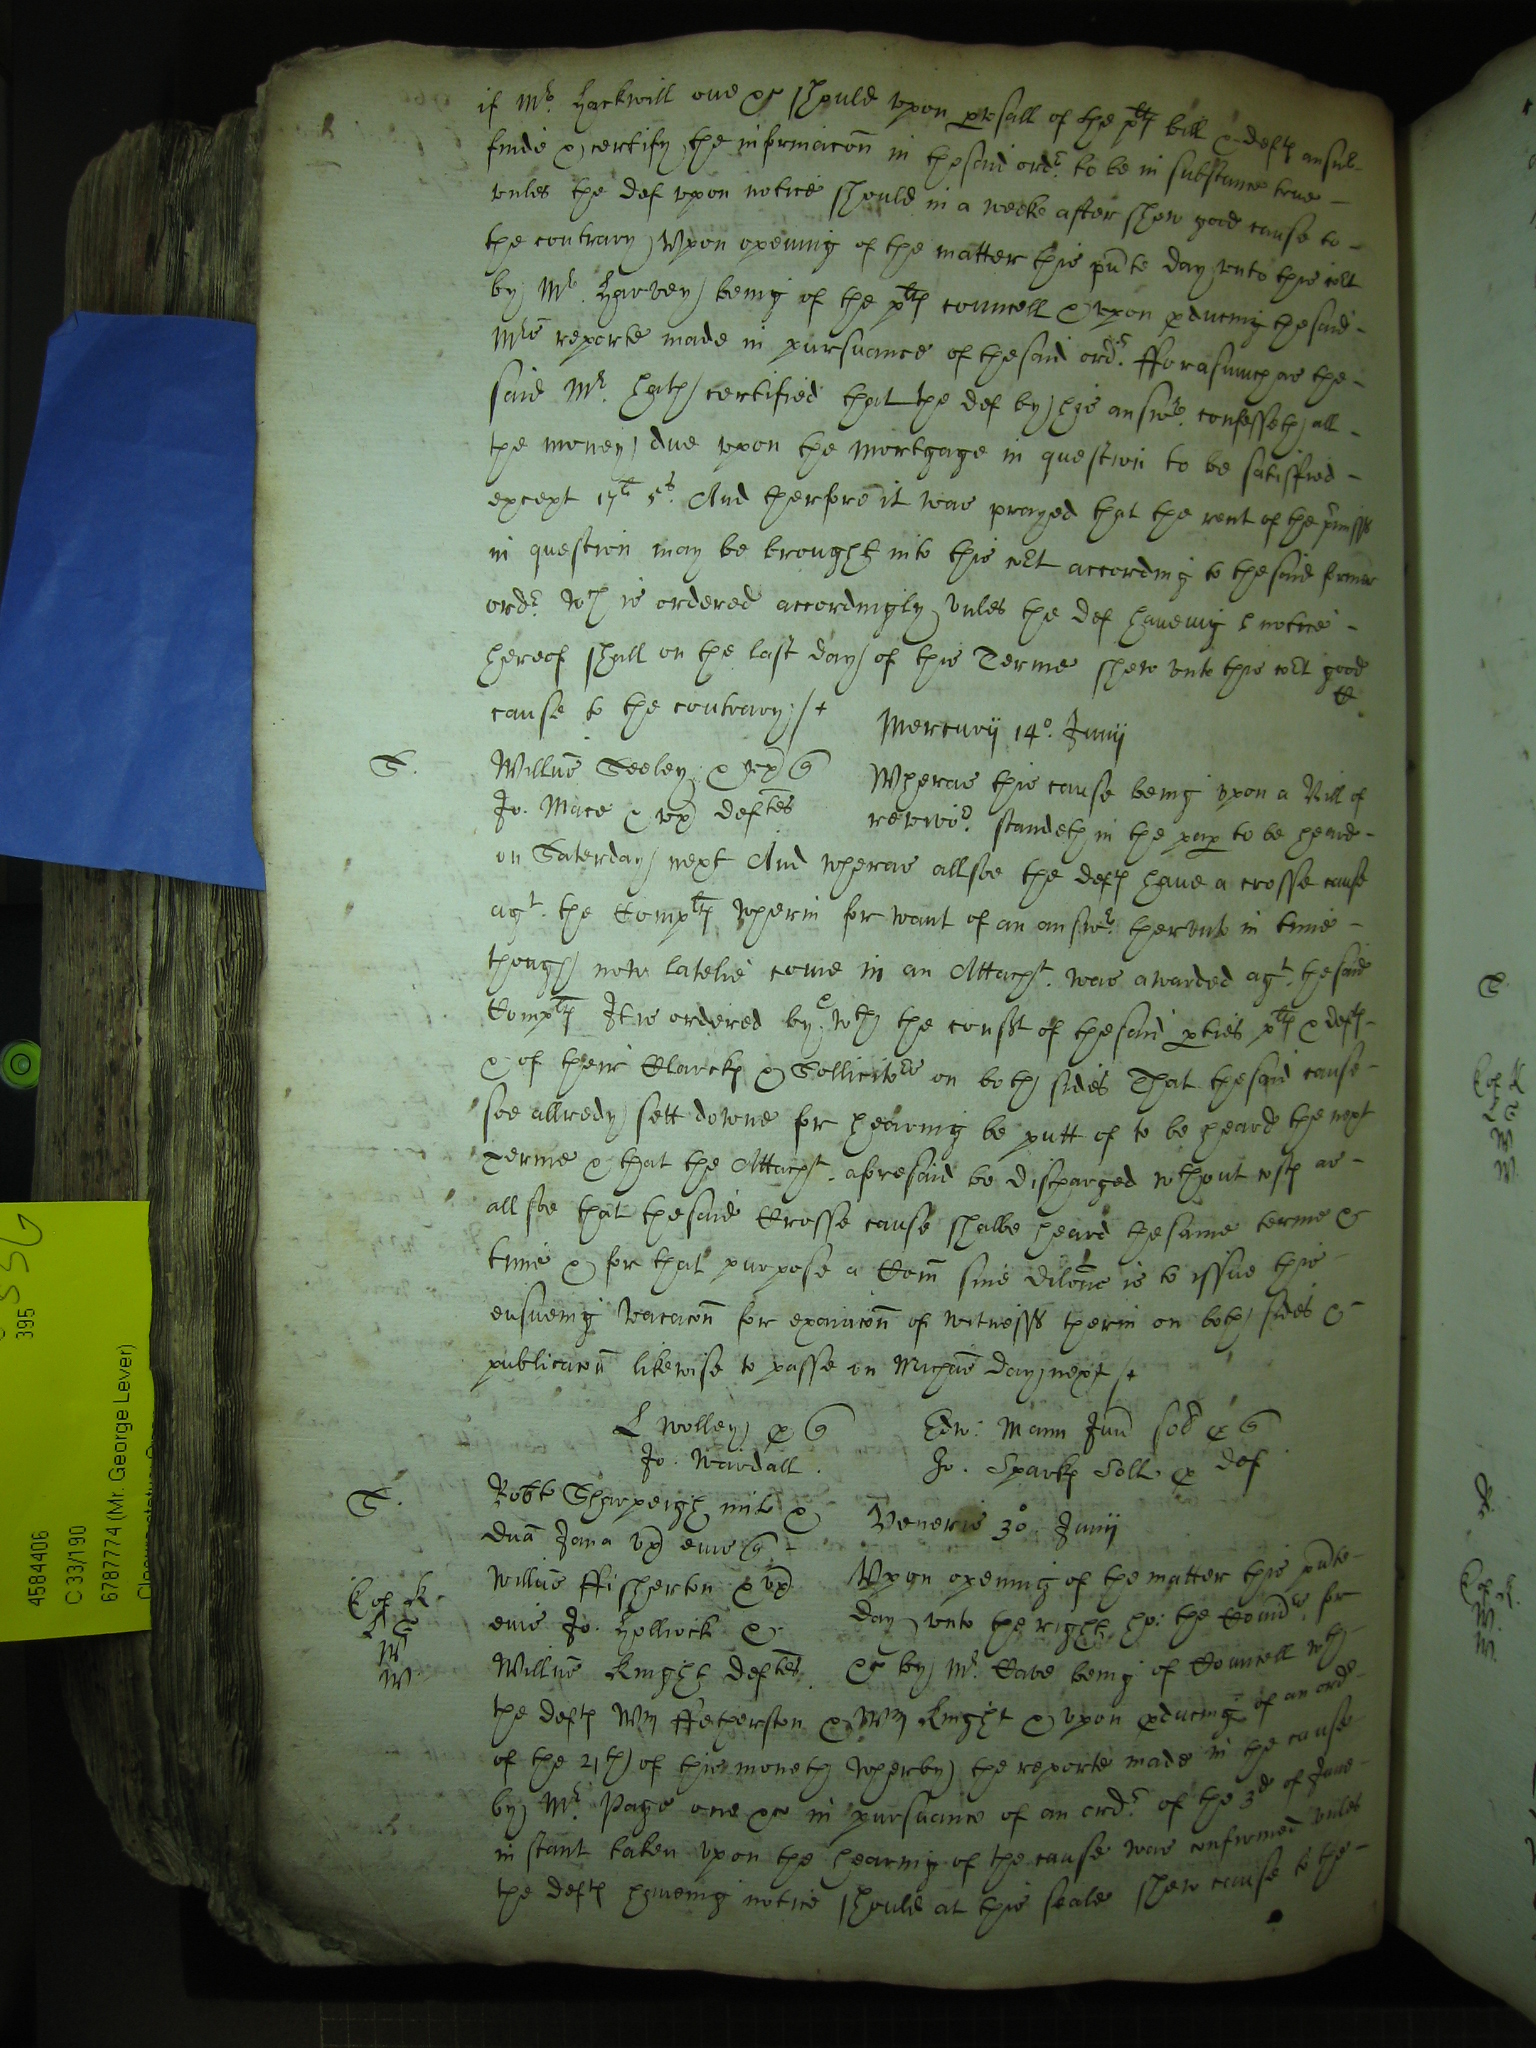 if Mr. Hackwill one &c should vpon pvsall of the pltes bill & deftes answer
finde & certify the informacon in the said ordr. to be in substance true
vnles the def vpon notice should in a weeke after shew good cause to
the contrary, Vpon opening of the matter this pnte day vnto this cort
by Mr. Harvey being of the pltes councell & vpon pducing the said
Mrs reporte made in pursuance of the said ordr. fforasmuch as the
said Mr. hath certified that the def by his answr. confesseth all
the money due vpon the mortgage in question to be satisfied
except 17li 5s. And therfore it was prayed that the rent of the pmisss
in question may be brought into this cort according to the said former
ordr. wch is ordered accordingly vnles the def haveing notice
hereof shall on the last day of this Terme shew vnto this cort good
cause to the contrary /
Mercurij 14o. Junij
S.
Willus Seeley & vx Quer
Jo. Mace & vx deftes
Wheras this cause being vpon a Bill of
revivor. standeth in the pap to be heard
on Saterday next And wheras allsoe the deftes have a crosse cause
agt. the Compltes wherin for want of an answr. thervnto in time
though now latelie come in an Attacht. was awarded agt. the said
Compltes It is ordered by & wth the consst of the said pties pltes & deftes
& of their Clarckes & Sollicitors on both sides That the said cause
soe allredy sett downe for hearing be putt of to be heard the next
terme & that the Attacht. aforesaid be discharged without costes as
allsoe that the said Crosse cause shalbe heard the same terme &
time & for that purpose a Com sine dilone is to issue this
ensueing vacacon for exaicon of witnesss therin on both sides &
publicacon likewise to passe on Michas day next /
L Wolley p Quer
Jo. Wardall.
Edw: Mann Jun sol p Quer
Jo. Sparkes Soll. p def
S.
Robte Sharpeigh mile &
dna Jana vx eius Quer
Veneris 30o. Junij
Willus ffisherton & vx
eius Jo. Holliock &
Willus Knight deftes.
Vpon opening of the matter this pnte
day vnto the right ho: the Comrs. for
&c by Mr. Cave being of Councell wth
the deftes Wm ffetherston & Wm Knight & vpon pducing of an order
of the 21th of this moneth wherby the reporte made in the cause
by Mr. Page one &c in pursuance of an ordr. of the 3d of June
instant taken vpon the hearing of the cause was confirmed vnles
the deftes haveing notice should at this seale shew cause to the
395
4584406
C 33/190
6787774 (Mr. George Lever)